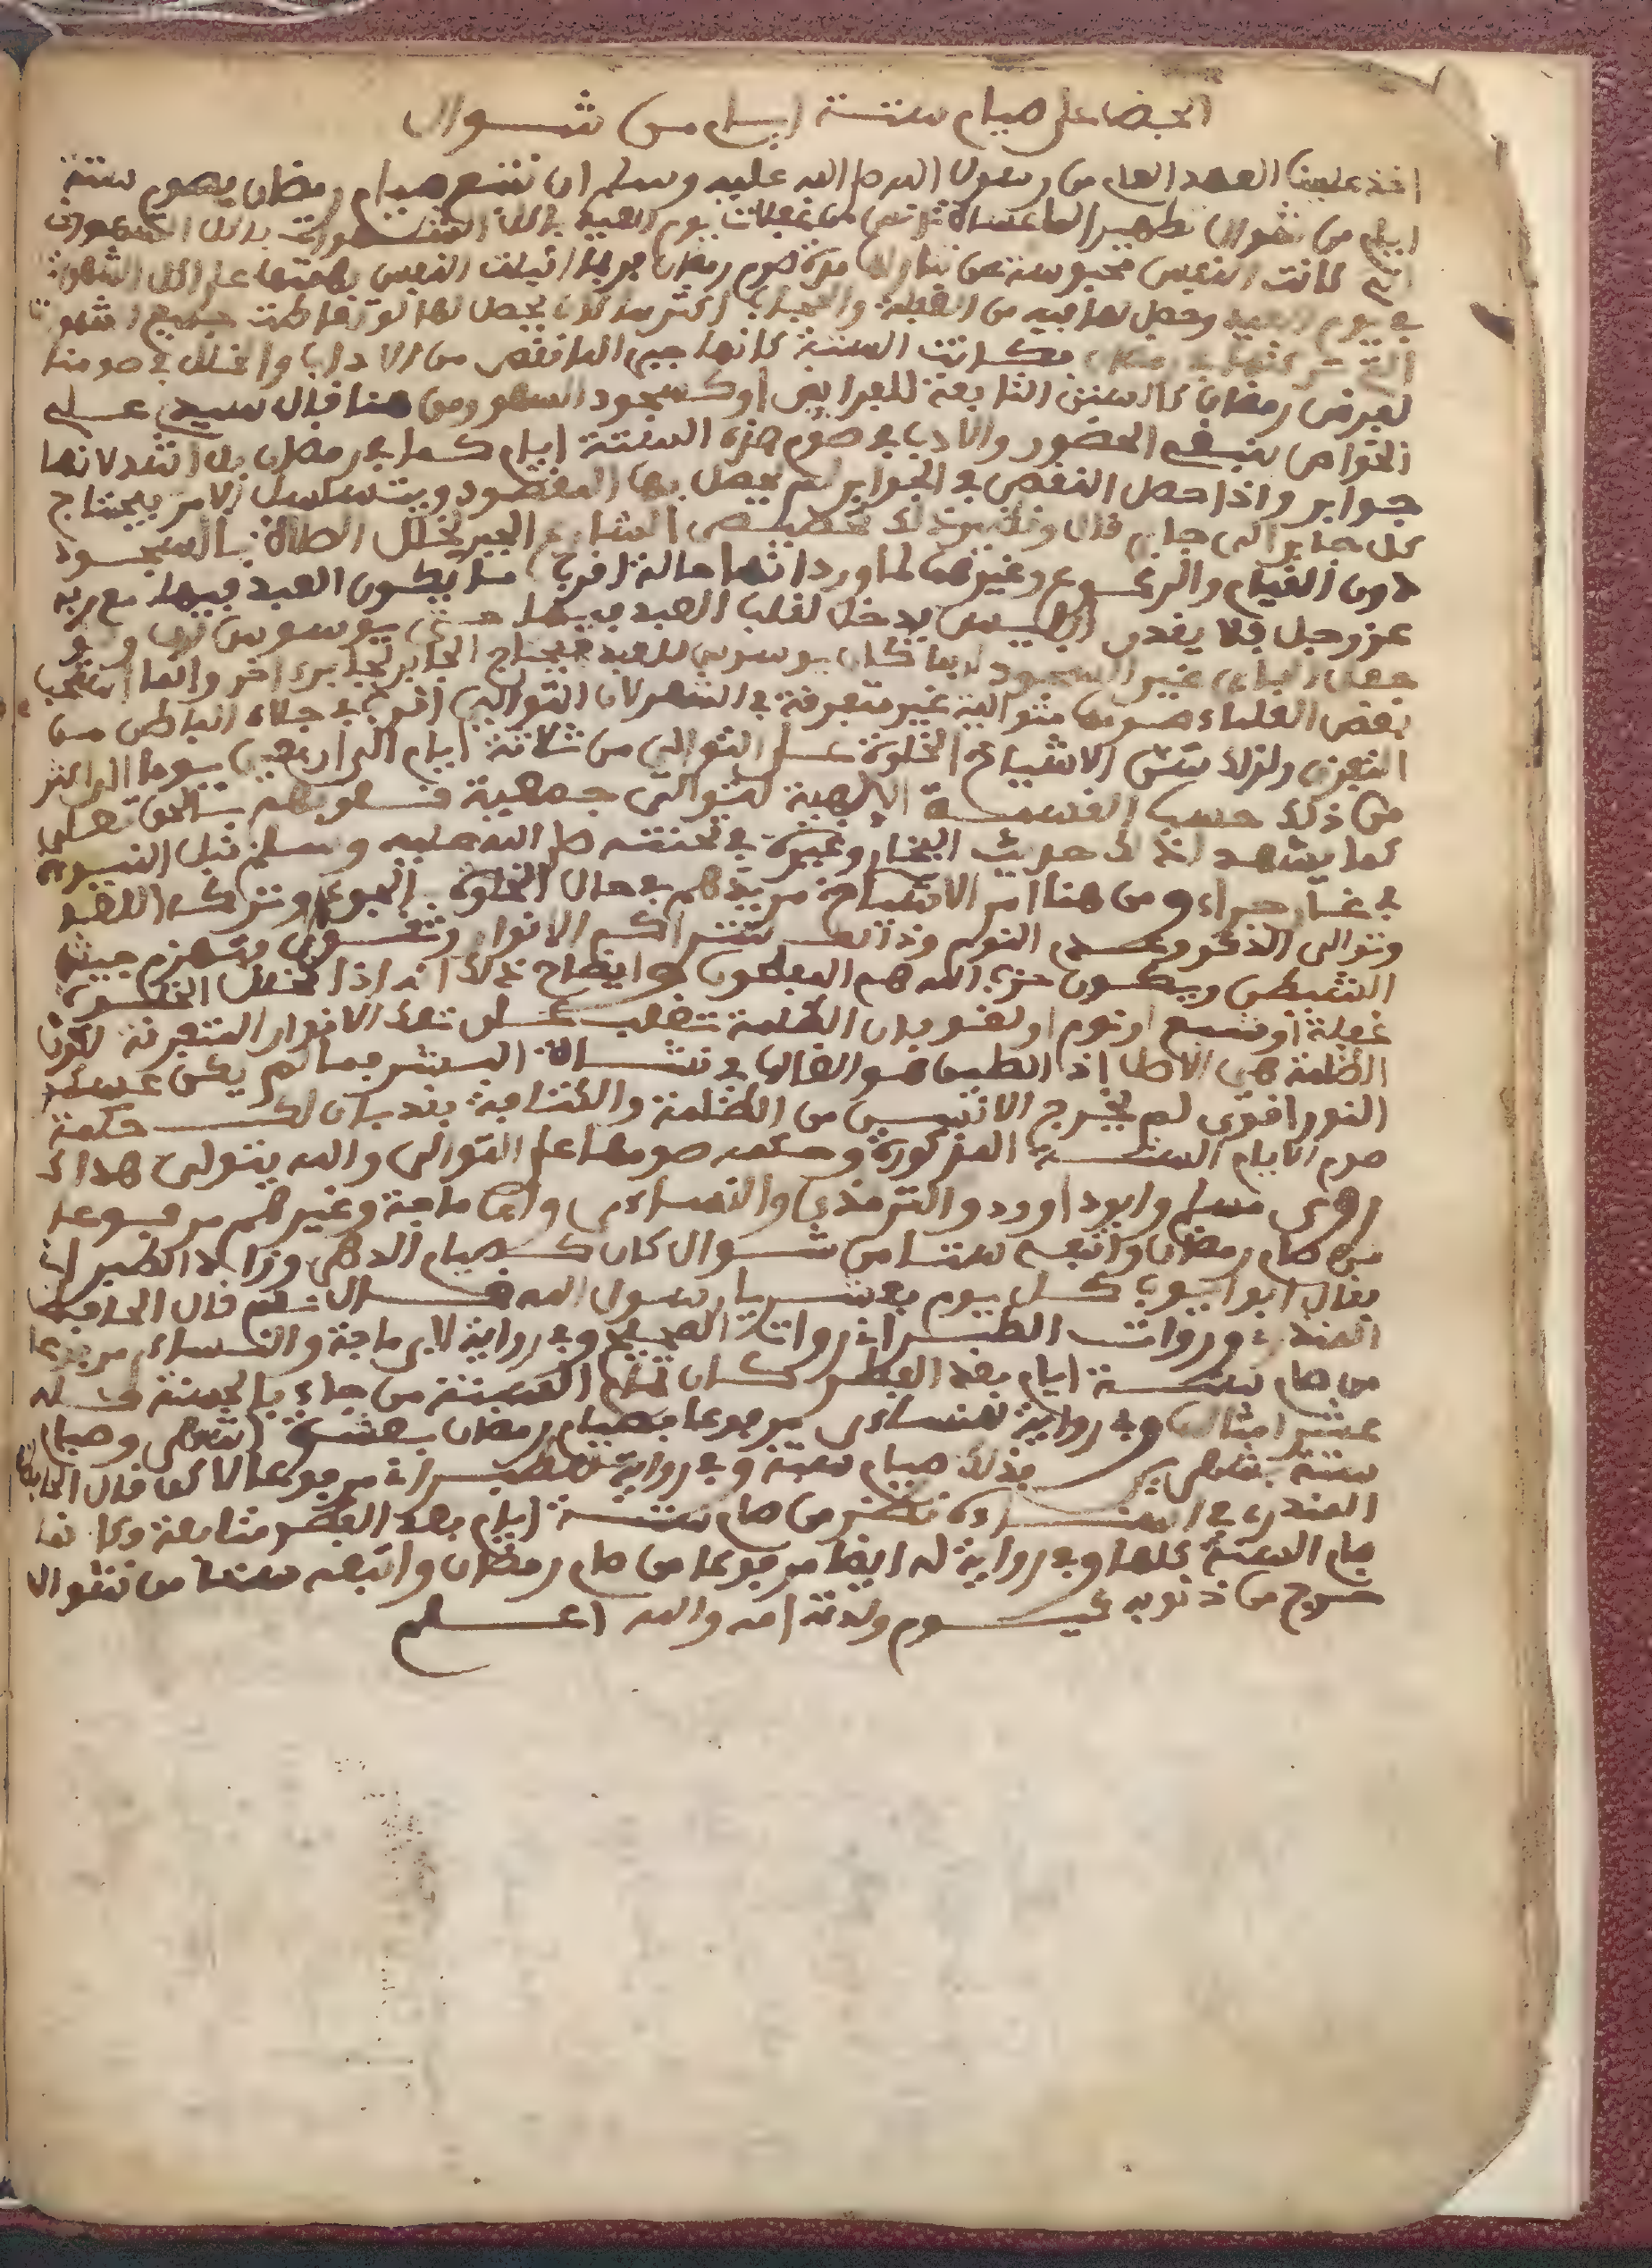 الحض على صيام ستة ايام من شوال
اخذ علينا العهد العام من رسول الله صلى الله عليه وسلم ان نتبع صيام رمضان بصوم ستة
ايام من شوال تطهيرا لما عساه تدنس من غفلات يوم العيد باكل الشهوات
كانت النفس محبوسة عن تناولها مدة صوم رمضان فربما اقبلت النفس بهمتها على اكل الشهوات
في يوم العيد وحصل لها فيه من الغفلة والحجاب اكثر مما كان يحصل لها لو تعاطت جميع الشهوات
التي تركتها في رمضان فكانت الستة كانها جبر لما نقص من الاداب والخلل في صومنا
لفرض رمضان كالسنن التابعة للفرايض او كسجود السهو ومن هنا قال سيدي علي
الخواص ينبغي الحضور والادب في صوم هذه الستة ايام كما في رمضان بل اشد لانها
جوابر واذا حصل النقص في الجوابر لم يحصل بها المقصود ويتسلسل الامر فيحتاج
كل جابر الى جابر قال ذلك تخصيص الشارع الجبر لخلل الصلاة بالسجود
دون القيام والركوع وغيرهما لما ورد انها حالة اقرب ما يكون العبد فيها مع ربه
عز وجل فلا يقدر ابليس يدخل لقلب العبد فيها حتى يوسوس له
جعل الجابر غير السجود لربما كان يوسوس للعبد فيحتاج الجابر لجابر اخر وانما استحب
بعض العلماء صومها متوالية غير متفرقة في الشهر لان التوالي اقرب في جلاء الباطن من
التفرق ولذلك الاشياخ الخلوة على التوالي من ثلاثة ايام الى اربعين يوما الى اكثر
من ذلك حسب القسمة الالهية لتوالي جمعية قلوبهم بالحق تعالى
كما يشهد لذلك حديث البخاري وغيره في تحنثه صلى الله عليه وسلم قبل النبوة
في غار حراء ومن هنا امر الاشياخ مريدهم في حال الخلوة بالجوع وترك اللغو
وتوالي الذكر وعدم النوم وذلك لتتراكم الانوار وتقوى ويهزم جيش
الشيطان ويكون حزب الله هم المفلحون وايضاح ذلك انه اذا تخلل الخلوة
غفلة او شبع او نوم او لغو فان الظلمة تغلب على تلك الانوار المتفرقة لكون
الظلمة هي الاصل اذ الطين هو الغالب في نشاة البشر فما لم يكن عسكر
النور اقوى لم يخرج الانسان من الظلمة والكثافة فقد بان لك حكمة
صوم الايام الستة المذكورة وحكمة صومها على التوالي والله يتولى هداك
روى مسلم وابو داوود والترمذي والنساءي وابن ماجة وغيرهم مرفوعا
من صام رمضان واتبعه ستا من شوال كان كصيام الدهر وزاد الطبراني
فقال ابو ايوب كل يوم بعشر يا رسول الله قال نعم قال الحافظ
المنذري ورواة الطبراني رواة الصحيح وفي رواية لابن ماجة والنساءي مرفوعا
من صام ستة ايام بعد الفطر كان تمام السنة من جاء بالحسنة فله
عشر امثالها وفي رواية للنساءي مرفوعا فصيام رمضان بعشرة اشهر وصيام
ستة بشهرين فذلك صيام سنة وفي رواية للطبراني مرفوعا لاكن قال الحافظ
المنذري في اسناده نظر من صام ستة ايام بعد الفطر متتابعة فكانما
صام السنة كلها وفي رواية له ايضا مرفوعا من صام رمضان واتبعه ستا من شوال
خرج من ذنوبه كيوم ولدته امه والله اعلم